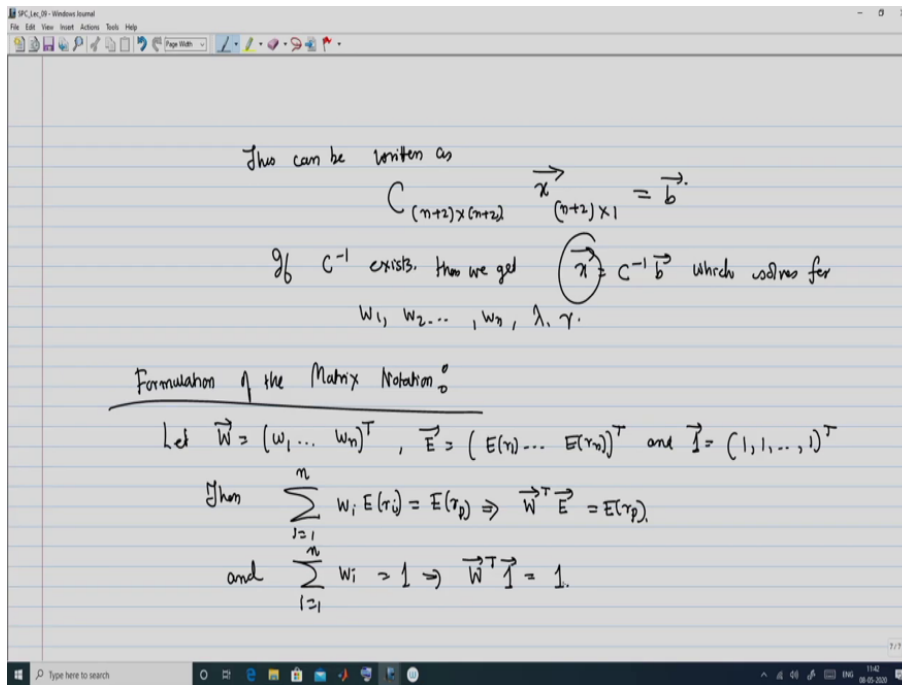 SPC_Lec_09 - Windows Journal
File Edit View Insert Actions Tools Help
Page Width
This can be written as
C(n+2)×(n+2) x⃗(n+2)×1 = b⃗.
If C⁻¹ exists. then we get x⃗ = C⁻¹ b⃗ which solves for
w₁, w₂... , wₙ, λ, γ.
Formulation of the Matrix Notation:
Let W⃗ = (w₁ ... wₙ)ᵀ , E⃗ = ( E(r₁) ... E(rₙ))ᵀ and 1⃗ = (1, 1, .., 1)ᵀ
Then ∑ᵢ₌₁ⁿ wᵢ E(rᵢ) = E(rₚ) ⇒ W⃗ᵀ E⃗ = E(rₚ).
and ∑ᵢ₌₁ⁿ wᵢ = 1 ⇒ W⃗ᵀ 1⃗ = 1.
7/7
Type here to search
ENG
11:42
08-05-2020